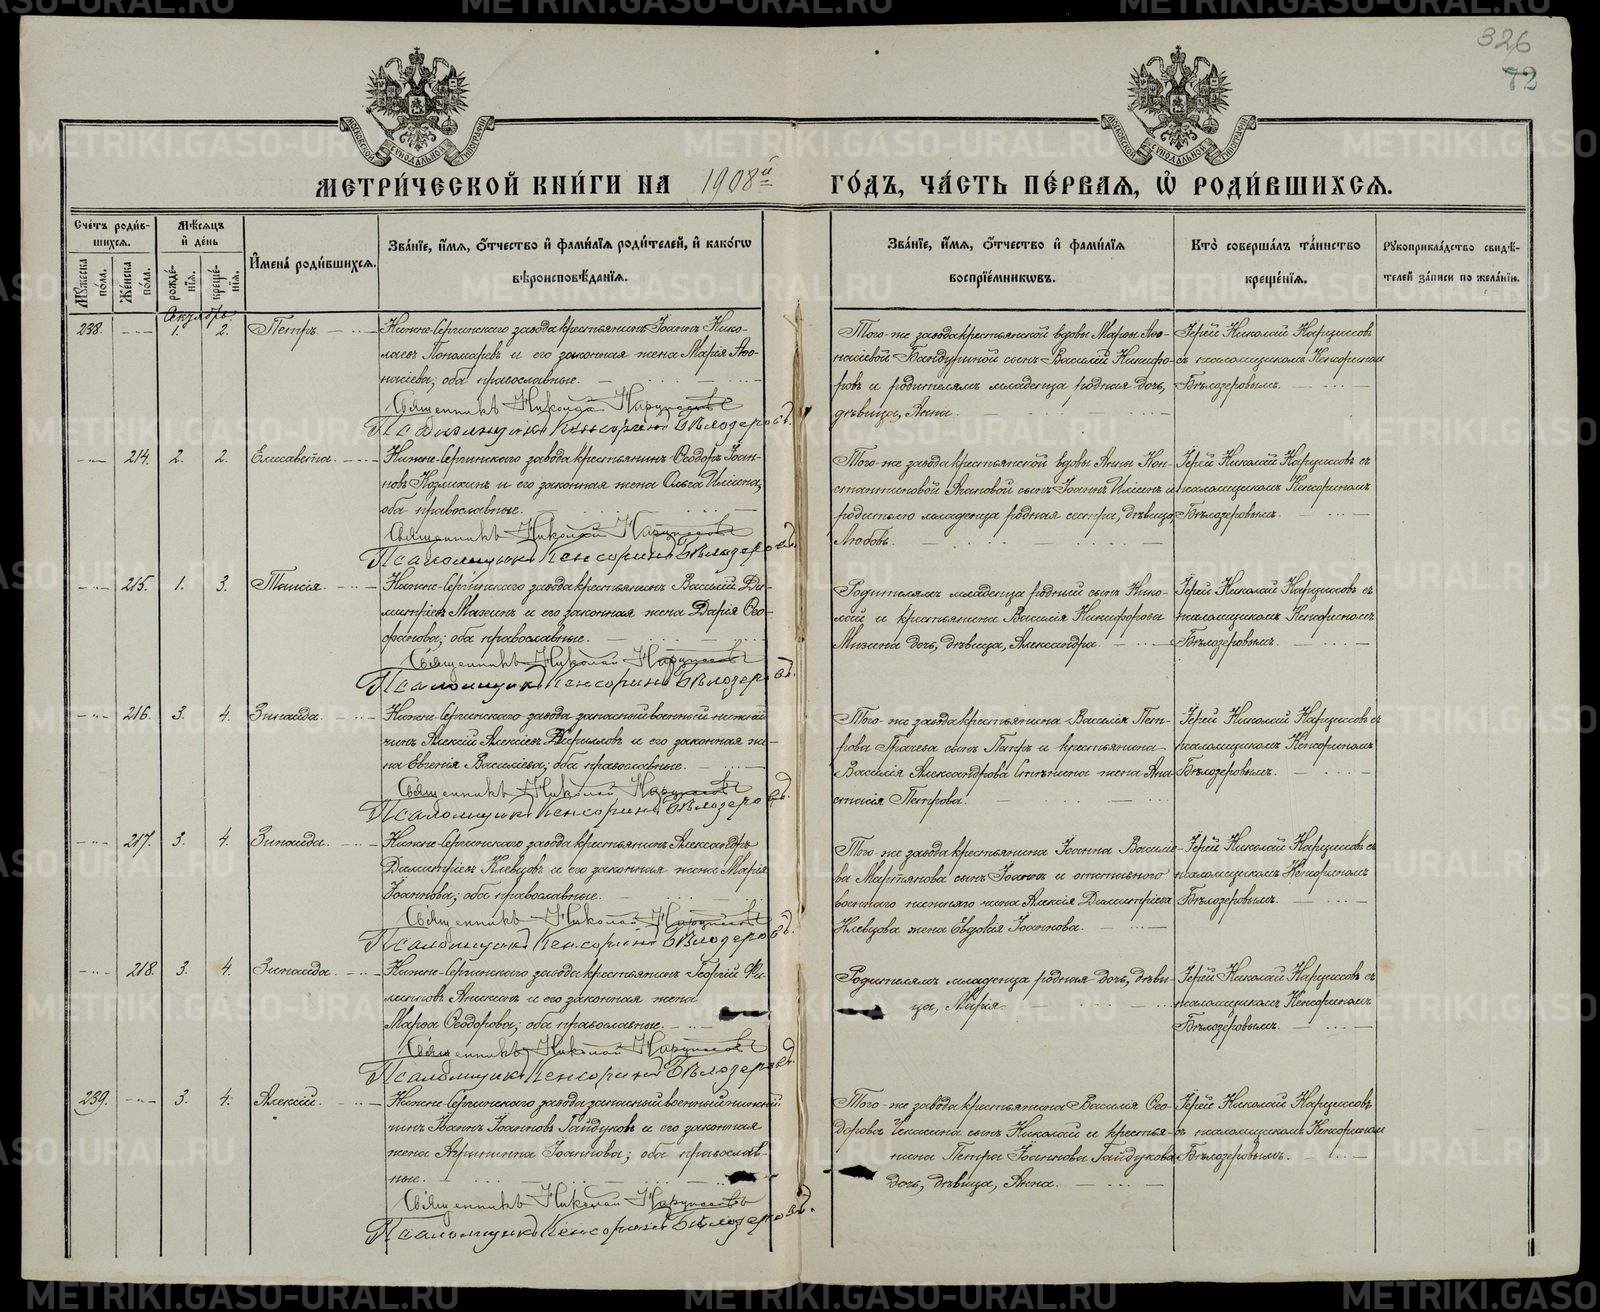 326
72
МОСКОВСКОЙ СѴНОДАЛЬНОЙ ТИПОГРАФІИ
МОСКОВСКОЙ СѴНОДАЛЬНОЙ ТИПОГРАФІИ
МЕТРИ́ЧЕСКОЙ КНИ́ГИ НА 1908й ГО́ДЪ, ЧА́СТЬ ПЕ́РВАЯ, Ѽ РОДИ́ВШИХСЯ.
Сче́тъ роди́в-
шихся.
Му́жеска по́ла.
Же́нска по́ла.
Мѣ́сяцъ
и҆ де́нь
рожде́нія.
креще́нія.
И҆мена̀ роди́вшихся.
Зва́ніе, и҆́мя, ѻ҆́тчество и҆ фами́лія роди́телей, и҆ како́гѡ
вѣроисповѣ́данія.
Зва́ніе, и҆́мя, ѻ҆́тчество и҆ фами́лія
воспріе́мникѡвъ.
Кто̀ соверша́лъ та́инство
креще́нія.
Рꙋкоприкла́дство свидѣ́-
телей за́писи по жела́нію.
Октябрь.
238. 1. 2. Петръ.
Нижне-Сергинскаго завода крестьянинъ Іоаннъ Нико-
лаевъ Пономаревъ и его законная жена Марія Аѳа-
насіева; оба православные.
Священникъ Николай Нарциссовъ
Псаломщикъ Кенсоринъ Бѣлозеровъ.
Того-же завода крестьянской вдовы Марѳы Аѳа-
насіевой Бандуриной сынъ Василій Никифо-
ровъ и родителямъ младенца родная дочь,
дѣвица, Анна.
Іерей Николай Нарциссовъ
съ псаломщикомъ Кенсориномъ
Бѣлозеровымъ.
214. 2. 2. Елисавета.
Нижне-Сергинскаго завода крестьянинъ Ѳеодоръ Іоан-
новъ и его законная жена Ольга Илиина;
оба православные.
Священникъ Николай Нарциссовъ
Псаломщикъ Кенсоринъ Бѣлозеровъ.
Того-же завода крестьянской вдовы Анны Кон-
стантиновой сынъ Іоаннъ Илиинъ и
родителю младенца родная сестра, дѣвица,
Любовь.
Іерей Николай Нарциссовъ съ
псаломщикомъ Кенсориномъ
Бѣлозеровымъ.
215. 1. 3. Таисія.
Нижне-Сергинскаго завода крестьянинъ Василій Ди-
митріевъ Мизинъ и его законная жена Дарія Ѳео-
фанова; оба православные.
Священникъ Николай Нарциссовъ
Псаломщикъ Кенсоринъ Бѣлозеровъ.
Родителямъ младенца родный сынъ Нико-
лай и крестьянина Василія Никифорова
Мизина дочь, дѣвица, Александра.
Іерей Николай Нарциссовъ съ
псаломщикомъ Кенсориномъ
Бѣлозеровымъ.
216. 3. 4. Зинаида.
Нижне-Сергинскаго завода запасный военный нижній
чинъ Алексій Алексіевъ Кирилловъ и его законная же-
на Евгенія Василіева; оба православные.
Священникъ Николай Нарциссовъ
Псаломщикъ Кенсоринъ Бѣлозеровъ.
Того-же завода крестьянина Василія Пет-
рова Грачева сынъ Петръ и крестьянина
Василія Александрова жена Ана-
стасія Петрова.
Іерей Николай Нарциссовъ съ
псаломщикомъ Кенсориномъ
Бѣлозеровымъ.
217. 3. 4. Зинаида.
Нижне-Сергинскаго завода крестьянинъ Александръ
Димитріевъ Клевцовъ и его законная жена Марія
Іоаннова; оба православные.
Священникъ Николай Нарциссовъ
Псаломщикъ Кенсоринъ Бѣлозеровъ.
Того-же завода крестьянина Іоанна Василіе-
ва Мартянова сынъ Іоаннъ и отставного
военнаго нижняго чина Алексія Димитріева
Клевцова жена Евдокія Іоаннова.
Іерей Николай Нарциссовъ съ
псаломщикомъ Кенсориномъ
Бѣлозеровымъ.
218. 3. 4. Зинаида.
Нижне-Сергинскаго завода крестьянинъ Георгій Фи-
липповъ Аникинъ и его законная жена
Марѳа Ѳеодорова; оба православные.
Священникъ Николай Нарциссовъ
Псаломщикъ Кенсоринъ Бѣлозеровъ.
Родителямъ младенца родная дочь, дѣви-
ца, Марія.
Іерей Николай Нарциссовъ съ
псаломщикомъ Кенсориномъ
Бѣлозеровымъ.
239. 3. 4. Алексій.
Нижне-Сергинскаго завода запасный военный нижній
чинъ Іоаннъ Іоанновъ Гайдуковъ и его законная
жена Агриппина Іоаннова; оба православ-
ные.
Священникъ Николай Нарциссовъ
Псаломщикъ Кенсоринъ Бѣлозеровъ.
Того-же завода крестьянина Василія Ѳео-
дорова Чекасина сынъ Николай и крестья-
нина Петра Іоаннова Гайдукова
дочь, дѣвица, Анна.
Іерей Николай Нарциссовъ
съ псаломщикомъ Кенсориномъ
Бѣлозеровымъ.
METRIKI.GASO-URAL.RU